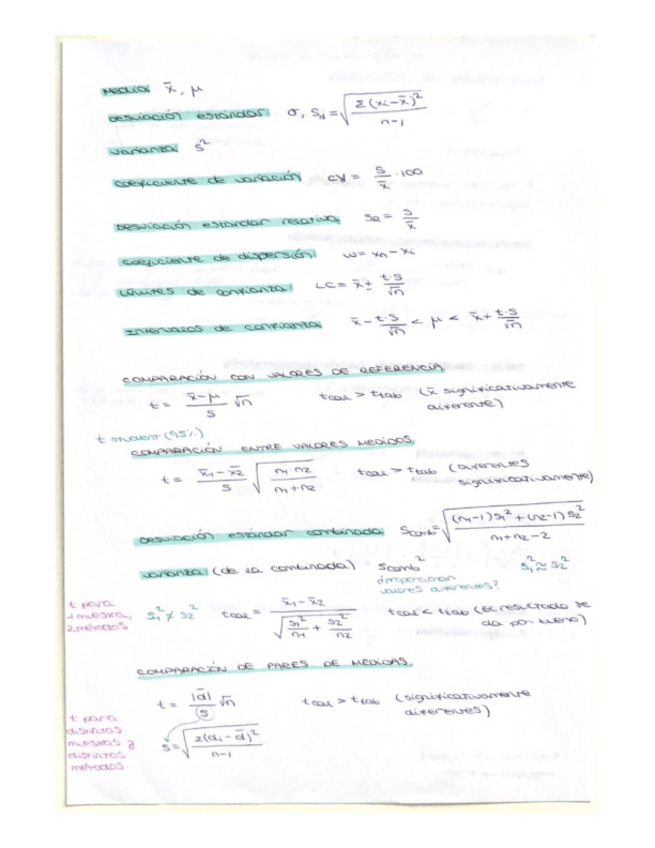 Media x̄, μ
Desviación estándar σ, Sd = √(Σ(xi-x̄)²/(n-1))
varianza s²
coeficiente de variación CV = s/x̄ · 100
Desviación estándar relativa SR = s/x̄
coeficiente de dispersión w = xn - xi
Límites de confianza LC = x̄ ± t·s/√n
Intervalos de confianza x̄ - t·s/√n < μ < x̄ + t·s/√n
COMPARACIÓN CON VALORES DE REFERENCIA
t = (x̄-μ)/s √n tcal > ttab (x̄ significativamente
diferente)
t student (95%)
COMPARACIÓN ENTRE VALORES MEDIOS
t = (x̄1 - x̄2)/s √(n1·n2/(n1+n2)) tcal > ttab (diferentes
significativamente)
Desviación estándar combinada Scomb = √(((n1-1)s1² + (n2-1)s2²)/(n1+n2-2))
varianza (de la combinada) Scomb² s1² ≈ s2²
¿proporcionan
valores diferentes?
t para
1 muestra,
2 métodos
s1² ≠ s2² tcal = (x̄1 - x̄2)/√(s1²/n1 + s2²/n2) tcal < ttab (El resultado se
da por bueno)
COMPARACIÓN DE PARES DE MEDIDAS
t = |d̄|/s √n tcal > ttab (significativamente
diferentes)
t para
distintas
muestras y
distintos
métodos
s = √(Σ(di - d̄)²/(n-1))